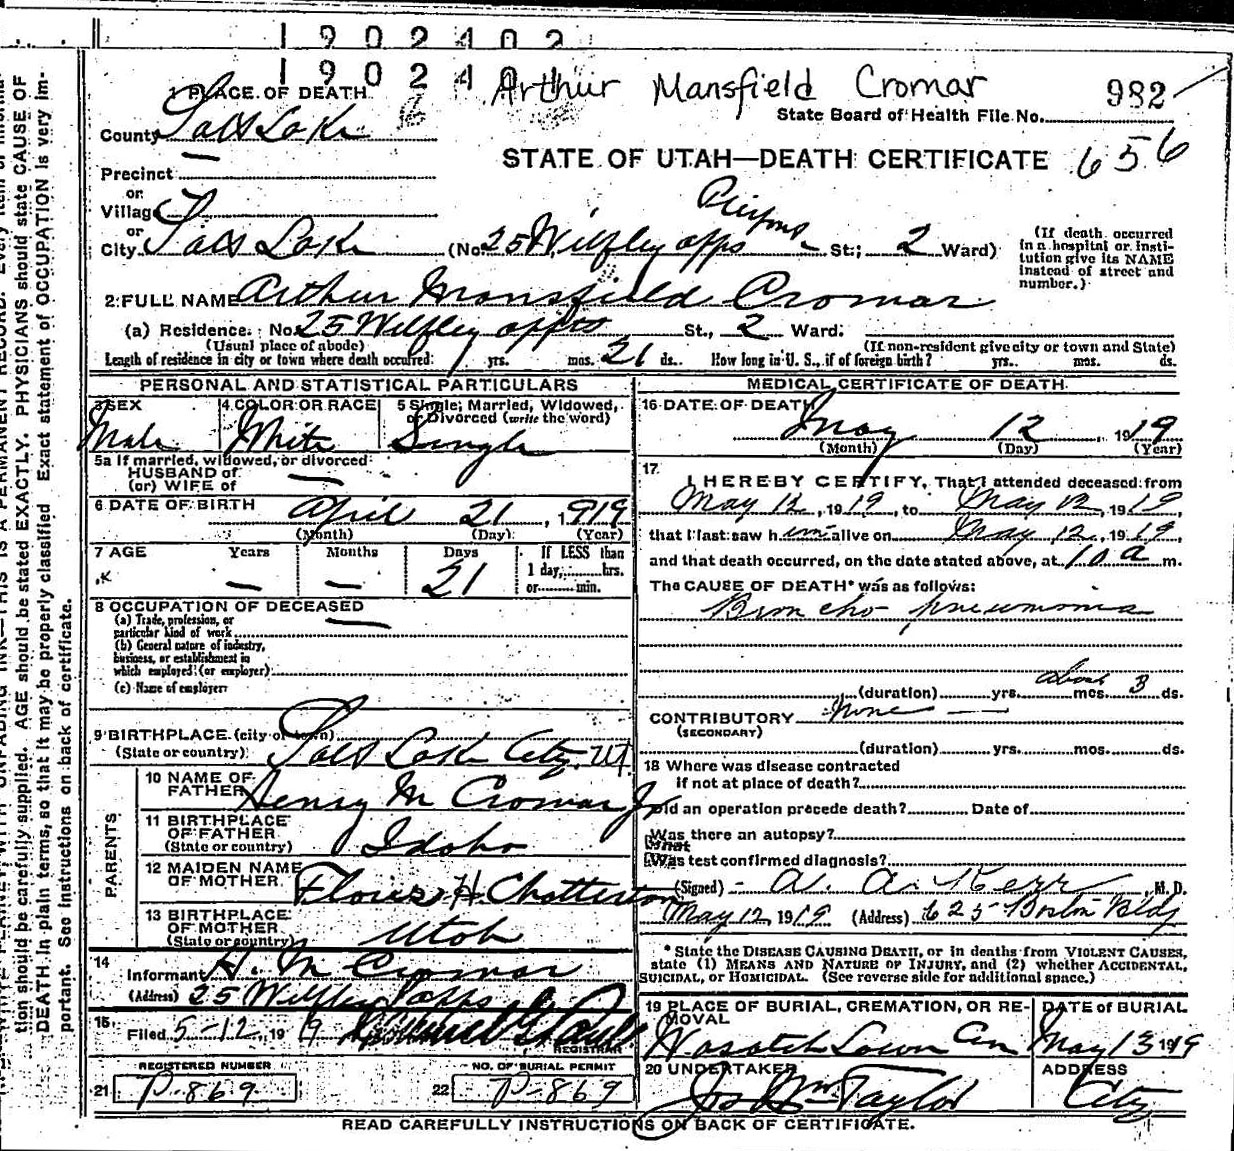 1902402
190240
Arthur Mansfield Cromar
982
State Board of Health File No.
656
STATE OF UTAH—DEATH CERTIFICATE
1 PLACE OF DEATH
County Salt Lake
Precinct
or
Village
or
City Salt Lake (No. 25 Wilfley apps St.; 2 Ward)
(If death occurred in a hospital or institution give its NAME instead of street and number.)
2 FULL NAME Arthur Mansfield Cromar
(a) Residence. No. 25 Wilfley appts St., 2 Ward.
(Usual place of abode) (If non-resident give city or town and State)
Length of residence in city or town where death occurred: yrs. mos. 21 ds. How long in U. S., if of foreign birth? yrs. mos. ds.
PERSONAL AND STATISTICAL PARTICULARS
3 SEX 4 COLOR OR RACE 5 Single, Married, Widowed, or Divorced (write the word)
Male White Single
5a If married, widowed, or divorced
HUSBAND of
(or) WIFE of
6 DATE OF BIRTH April 21, 1919
(Month) (Day) (Year)
7 AGE Years Months Days If LESS than
— — 21 1 day, hrs.
or min.
8 OCCUPATION OF DECEASED
(a) Trade, profession, or
particular kind of work
(b) General nature of industry,
business, or establishment in
which employed (or employer)
(c) Name of employer
9 BIRTHPLACE (city or town)
(State or country) Salt Lake City. Ut.
PARENTS
10 NAME OF
FATHER Henry M Cromar Jr
11 BIRTHPLACE
OF FATHER
(State or country) Idaho
12 MAIDEN NAME
OF MOTHER H. Chatterton
13 BIRTHPLACE
OF MOTHER
(State or country) Utah
14 Informant H. M Cromar
(Address) 25 Wilfley apps
15. Filed 5-12, 1919
REGISTRAR
REGISTERED NUMBER NO. OF BURIAL PERMIT
21 P-869 22 P-869
MEDICAL CERTIFICATE OF DEATH
16 DATE OF DEATH
May 12, 1919
(Month) (Day) (Year)
17 I HEREBY CERTIFY, That I attended deceased from
May 12, 1919, to May 12, 1919,
that I last saw him alive on May 12, 1919,
and that death occurred, on the date stated above, at 10 a m.
The CAUSE OF DEATH* was as follows:
Broncho pneumonia
(duration) yrs. mos. about 3 ds.
CONTRIBUTORY None
(SECONDARY)
(duration) yrs. mos. ds.
18 Where was disease contracted
if not at place of death?
Did an operation precede death? Date of
Was there an autopsy?
What
Was test confirmed diagnosis?
(Signed) A. A. Kerr, M. D.
May 12 1919 (Address) 625 Boston Bldg
* State the DISEASE CAUSING DEATH, or in deaths from VIOLENT CAUSES,
state (1) MEANS AND NATURE OF INJURY, and (2) whether ACCIDENTAL,
SUICIDAL, or HOMICIDAL. (See reverse side for additional space.)
19 PLACE OF BURIAL, CREMATION, OR REMOVAL DATE OF BURIAL
Wasatch Lawn Cem May 13 1919
20 UNDERTAKER ADDRESS
Jos Wm Taylor City
READ CAREFULLY INSTRUCTIONS ON BACK OF CERTIFICATE.
tion should be carefully supplied. AGE should be stated EXACTLY. PHYSICIANS should state CAUSE OF
DEATH in plain terms, so that it may be properly classified. Exact statement of OCCUPATION is very important. See instructions on back of certificate.